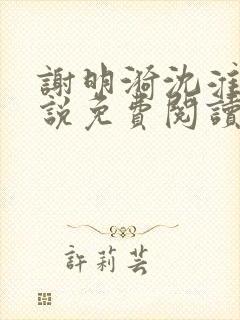 謝明漪沈淮
說免費閱讀
許莉芸